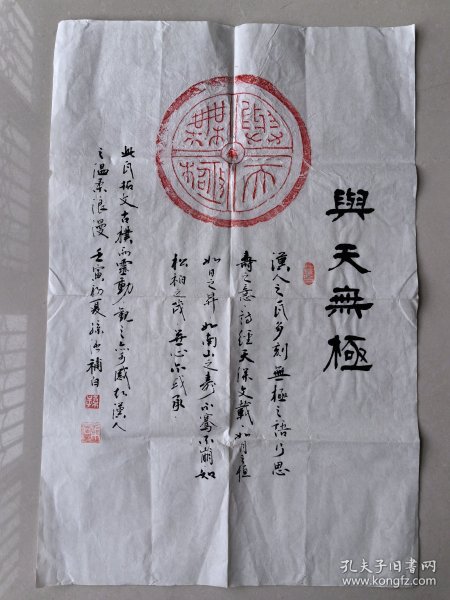 與天無極
與天無極
漢人之瓦多刻無極之語乃思
壽之意詩經天保文載如月之恒
如日之升如南山之壽不騫不崩如
松柏之茂無心尔或承
此瓦拓文古樸而靈動觀之亦可感知漢人
之溫柔浪漫壬寅初夏 補白
孔夫子旧书网
www.kongfz.com